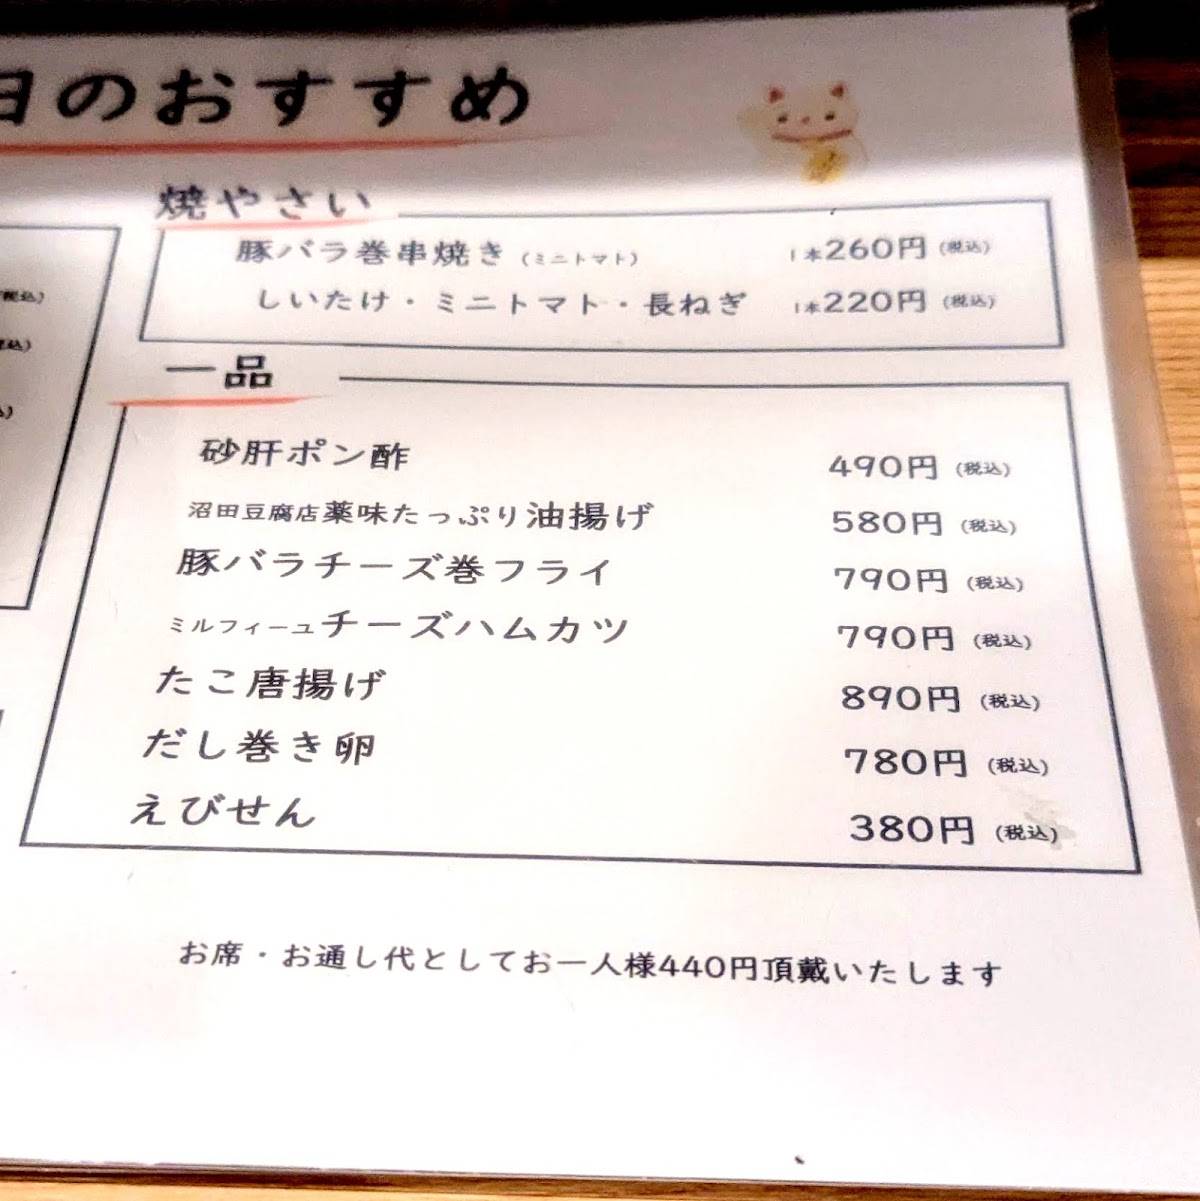 日のおすすめ
焼やさい
豚バラ巻串焼き(ミニトマト) 1本260円(税込)
しいたけ・ミニトマト・長ねぎ 1本220円(税込)
税込)
税込)
込)
一品
砂肝ポン酢 490円(税込)
沼田豆腐店薬味たっぷり油揚げ 580円(税込)
豚バラチーズ巻フライ 790円(税込)
ミルフィーユチーズハムカツ 790円(税込)
たこ唐揚げ 890円(税込)
だし巻き卵 780円(税込)
えびせん 380円(税込)
お席・お通し代としてお一人様440円頂戴いたします